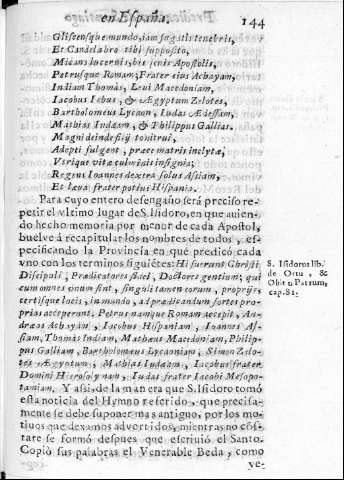 en España. 144
Glistensque mundo, iam fugatis tenebris,
Et Candelabro tibi supposito,
Micans lucernis, bis senis Apostolis,
Petrusque Romam; Frater eius Achayam,
Indiam Thomàs, Leui Macedoniam,
Iacobus Iebus, & Ægyptum Zelotes,
Bartholomeus Lycaon, Iudas Ædessam,
Mathias Iudæam, & Philippus Gallias.
Magni deinde filij tonitrui,
Adepti fulgent, præce matris inclytæ,
Vterque vitæ culminis insignia;
Regens Ioannes dextra solus Asiam,
Et læua frater potius Hispania.
Para cuyo entero desengaño será preciso re-
petir el vltimo lugar de S. Isidoro, en que auien-
do hecho memoria por menor de cada Apostol,
buelve à recapitular los nombres de todos, es-
pecificando la Provincia en què predicò cada
vno con los terminos siguiẽtes: Hi fuerunt Christi
Discipuli, Prædicatores fidei, Doctores gentium; qui
cum omnes vnum sint, singuli tamen eorum, proprijs
certisque locis, in mundo, ad prædicandum sortes pro-
prias acceperunt. Petrus namque Romam accepit, An-
dræas Achayam, Iacobus Hispaniam, Ioannes As-
siam, Thomas Indiam, Mathæus Macedoniam, Philip-
pus Galliam, Bartholomeus Lycaoniam, Simon Zelo-
tes Ægyptum, Mathias Iudæam, Iacobus frater
Domini Hierosolymam, Iudas frater Iacobi Mesopo-
tamiam. Y assi, de la manera que S. Isidoro tomò
esta noticia del Hymno referido, que precisa-
mente se debe suponer mas antiguo, por los mo-
tiuos que dexamos advertidos, mientras no cõs-
tare se formò despues que escriuiò el Santo.
Copiò sus palabras el Venerable Beda, como
ve-
S. Isidorus lib.
de Ortu, &
Obitu Patrum,
cap. 81.